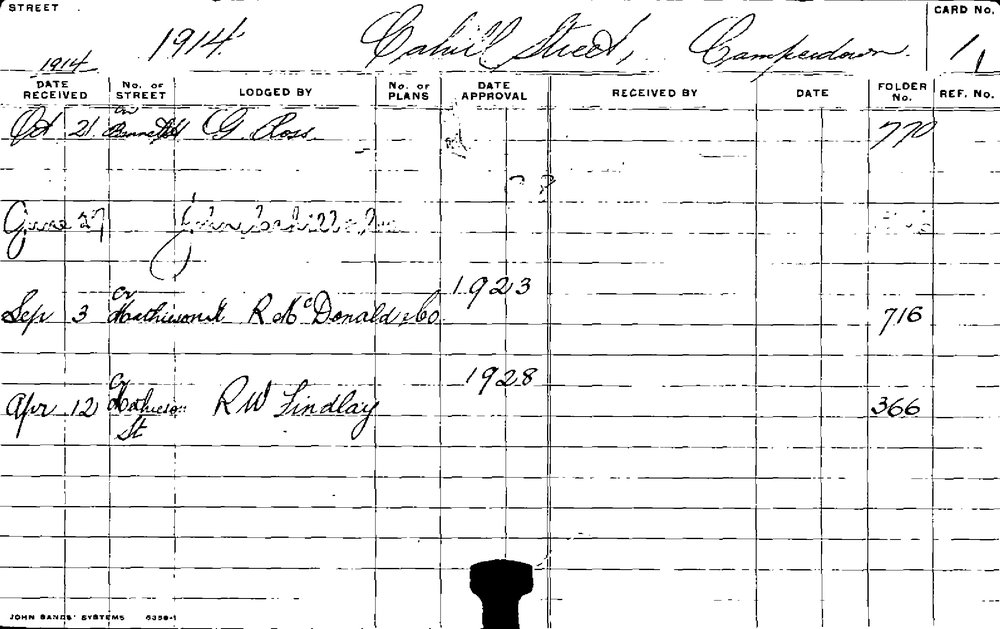 STREET
CARD No.
1914 Cahill Street, Camperdown. 1,
1914
DATE RECEIVED No. OF STREET LODGED BY No. OF PLANS DATE APPROVAL RECEIVED BY DATE FOLDER No. REF. No.
Cr
Oct 21 G. Ross. 770
June 27 John Cahill
1923
Cr
Sep 3 R McDonald & Co 716
1928
Cr
Apr 12 Mathieson R W Findlay 366
St
JOHN SANDS' SYSTEMS